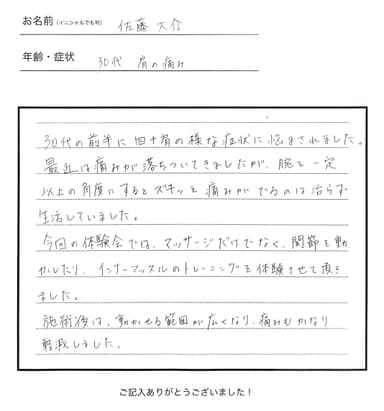 お名前（イニシャルでも可） 佐藤 大介
年齢・症状 30代 肩の痛み
30代の前半に四十肩の様な症状に悩まされました。
最近は痛みが落ちついてきましたが、腕を一定
以上の角度にするとズキッと痛みがでるのは治らず
生活していました。
今回の体験会では、マッサージだけでなく、関節を動
かしたり、インナーマッスルのトレーニングを体験させて頂き
ました。
施術後は、動かせる範囲が広くなり、痛みもかなり
軽減しました。
ご記入ありがとうございました！